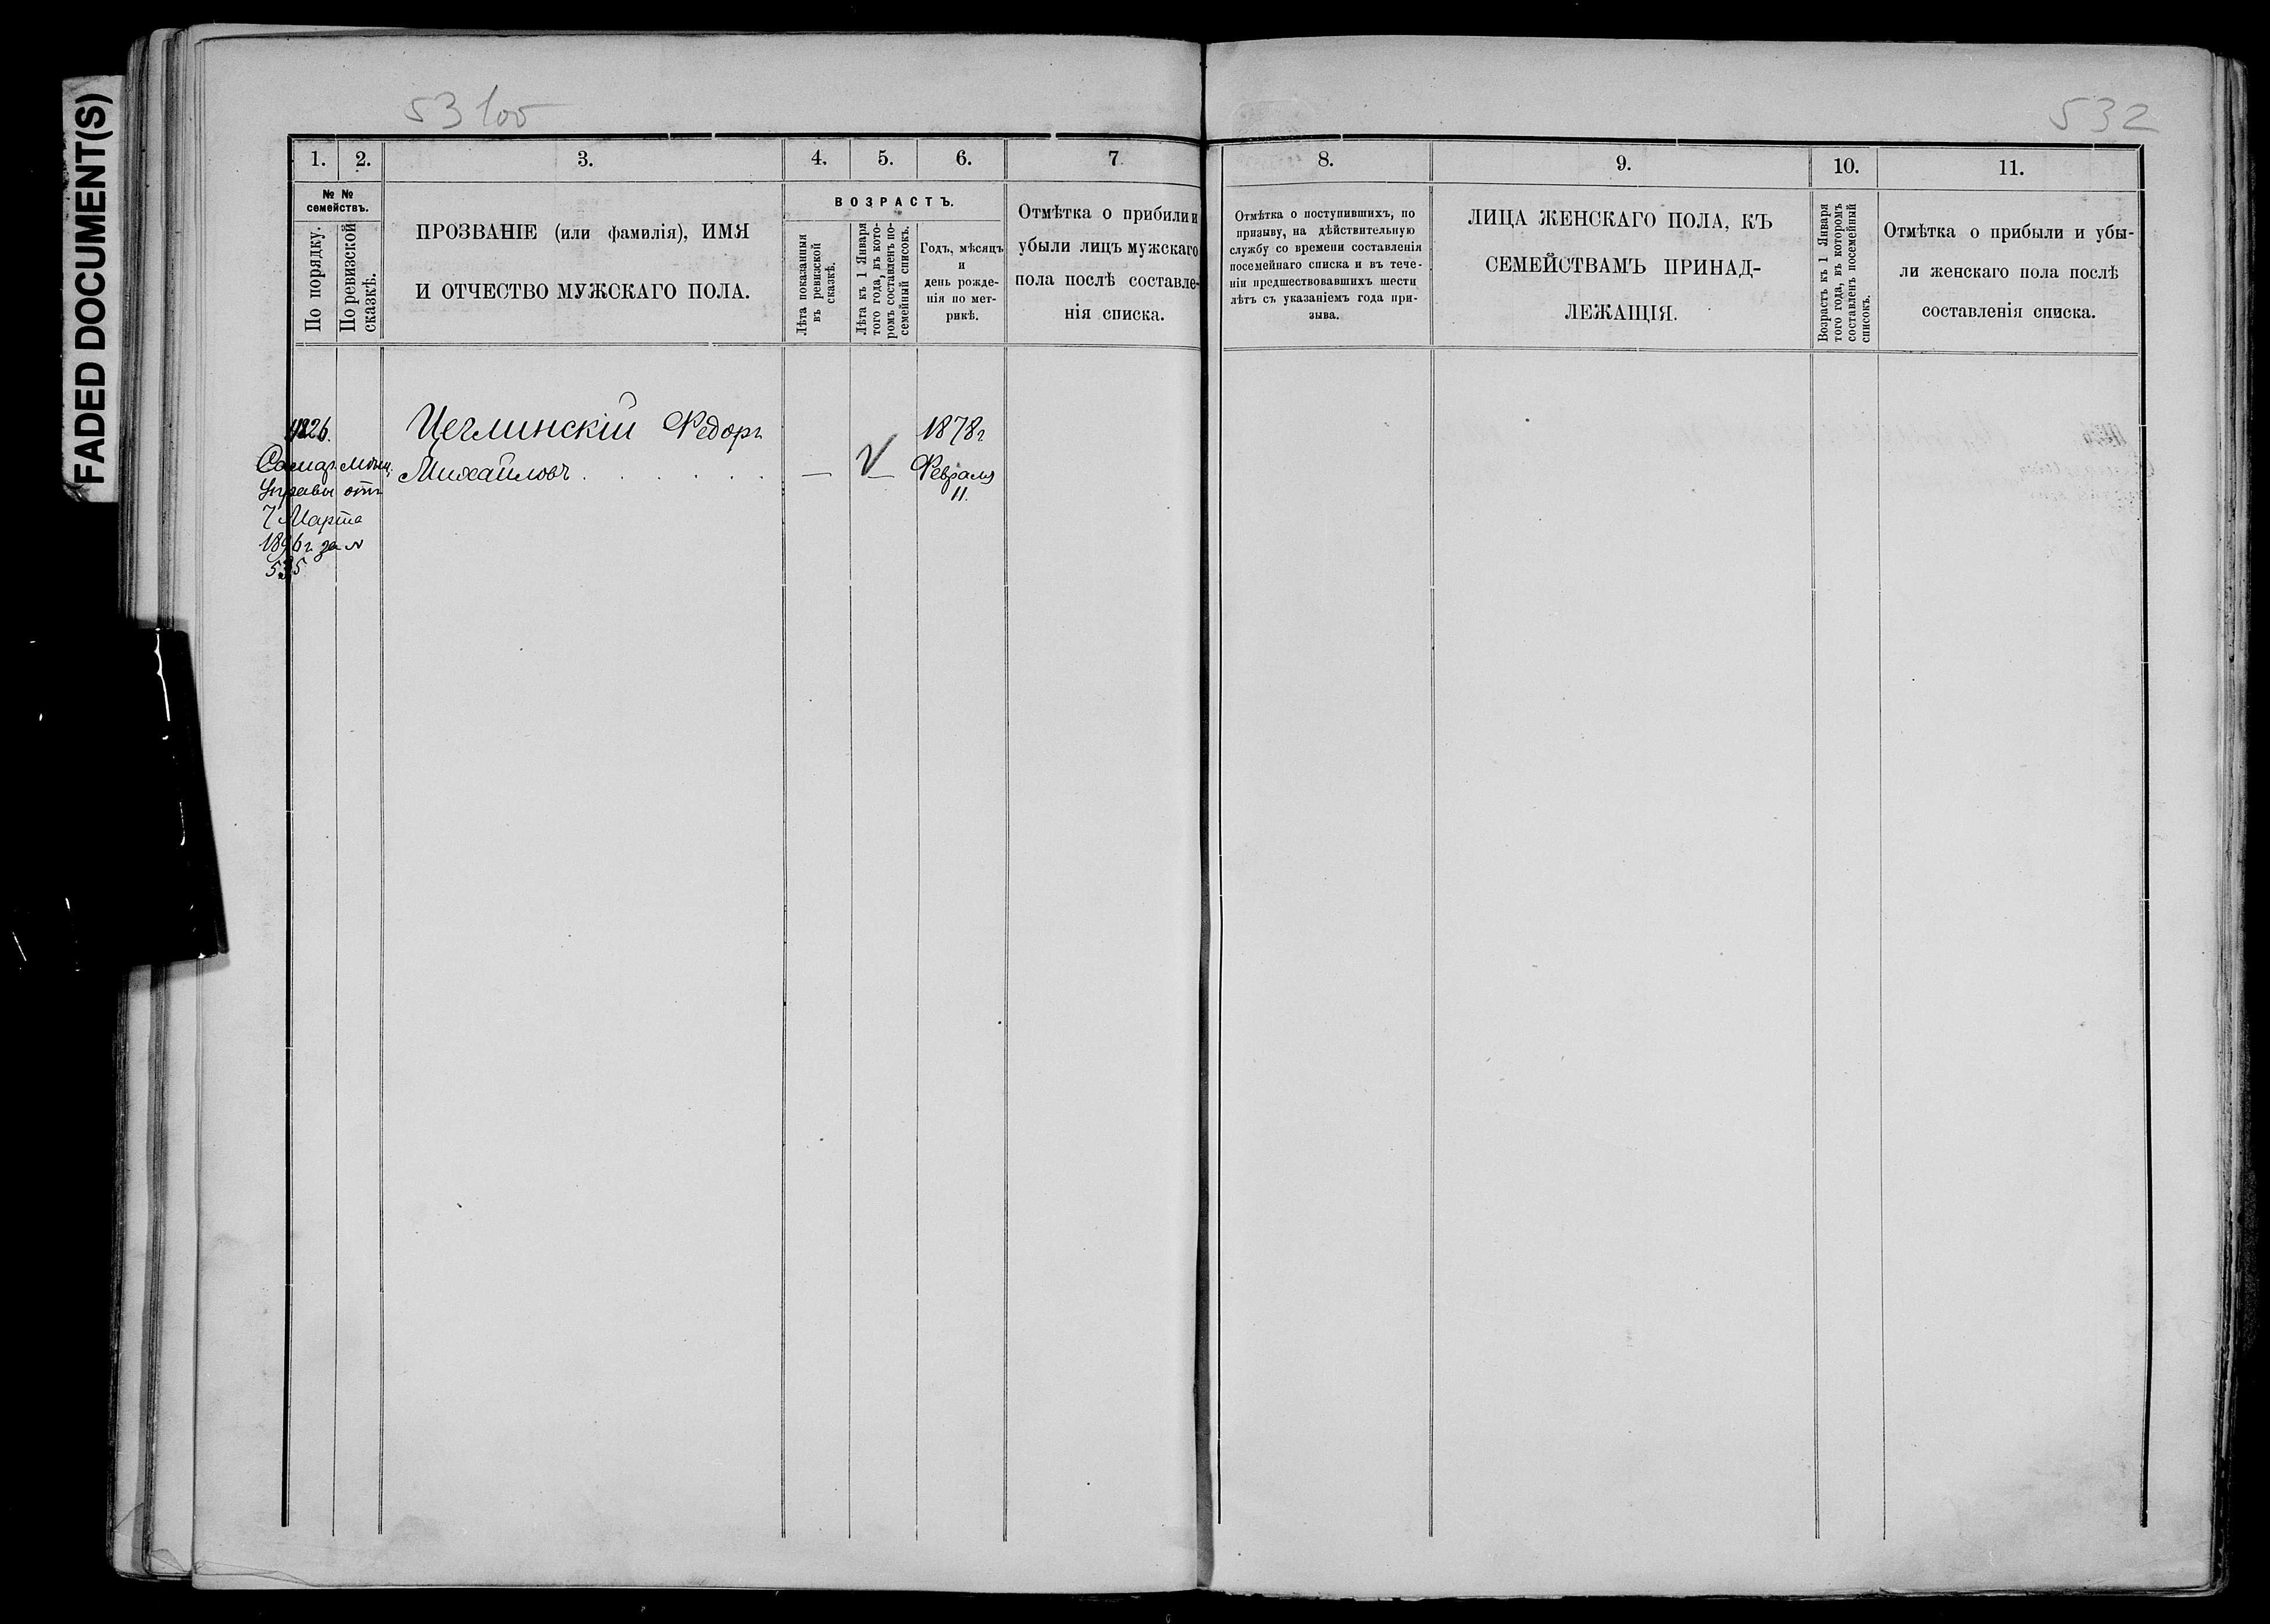 FADED DOCUMENT(S)
53 100
532
1.
2.
3.
4.
5.
6.
7.
8.
9.
10.
11.
№ №
семействъ.
По порядку.
По ревизской
сказкѣ.
ПРОЗВАНІЕ (или фамилія), ИМЯ
И ОТЧЕСТВО МУЖСКАГО ПОЛА.
ВОЗРАСТЪ.
Лѣта показанныя
въ ревизской
сказкѣ.
Лѣта къ 1 Января
того года, въ кото-
ромъ составленъ по-
семейный списокъ.
Годъ, мѣсяцъ
и
день рожде-
нія по мет-
рикѣ.
Отмѣтка о прибыли и
убыли лицъ мужскаго
пола послѣ составле-
нія списка.
Отмѣтка о поступившихъ, по
призыву, на дѣйствительную
службу со времени составленія
посемейнаго списка и въ тече-
ніи предшествовавшихъ шести
лѣтъ съ указаніемъ года при-
зыва.
ЛИЦА ЖЕНСКАГО ПОЛА, КЪ
СЕМЕЙСТВАМЪ ПРИНАД-
ЛЕЖАЩІЯ.
Возрастъ къ 1 Января
того года, въ которомъ
составленъ посемейный
списокъ.
Отмѣтка о прибыли и убы-
ли женскаго пола послѣ
составленія списка.
Самар. мѣщ.
Управы отъ
7 Марта
1896 г за №
535
Цеглинскій Федоръ
Михайловъ
— V —
1878 г
Февраля
11.